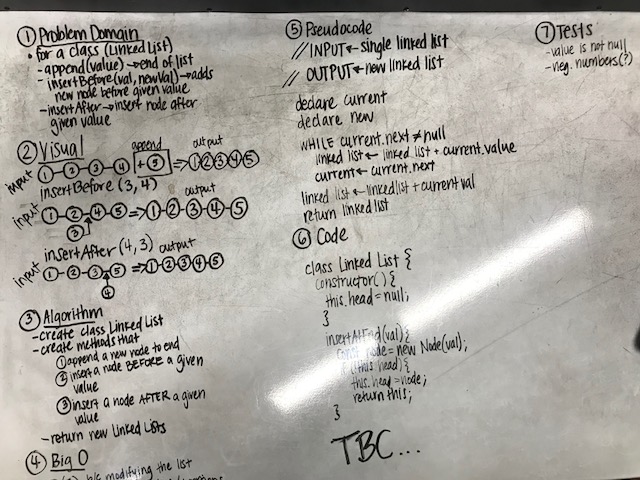 ① Problem Domain
• for a class (Linked List)
- append(value) → end of list
- insertBefore(val, newVal) → adds
new node before given value
- insertAfter → insert node after
given value
② Visual
append
output
input
① ② ③ ④ + ⑤ ⇒ ① ② ③ ④ ⑤
insertBefore (3, 4)
output
input
① - ② - ④ - ⑤ ⇒ ① - ② - ③ - ④ - ⑤
③
insertAfter (4, 3) output
input
① - ② - ③ - ⑤ ⇒ ① - ② - ③ - ④ - ⑤
④
③ Algorithm
- create class Linked List
- create methods that
① append a new node to end
② insert a node BEFORE a given
value
③ insert a node AFTER a given
value
- return new Linked Lists
④ Big O
b/c modifying the list
⑤ Pseudocode
// INPUT ← single linked list
// OUTPUT ← new linked list
declare current
declare new
WHILE current.next ≠ null
linked list ← linked list + current.value
current ← current.next
linked list ← linked list + current val
return linked list
⑥ Code
class Linked List {
constructor() {
this.head = null;
}
insertAtEnd(val) {
const node = new Node(val);
if (!this.head) {
this.head = node;
return this;
}
TBC...
⑦ Tests
- value is not null
- neg. numbers(?)